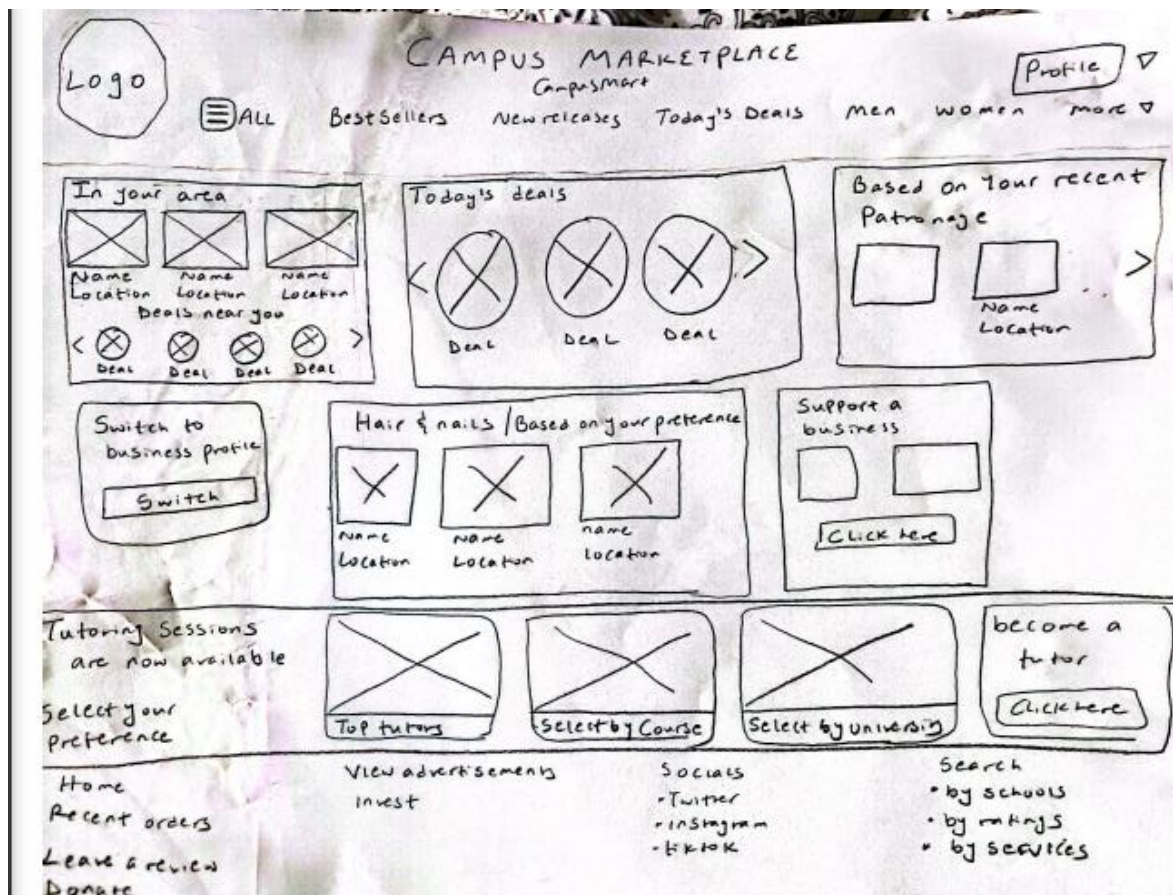 Logo
CAMPUS MARKETPLACE
CampusMart
Profile
ALL
Best Sellers
New releases
Today's Deals
Men
women
more
In your area
Name
Location
Name
Location
Name
Location
Deals near you
Deal
Deal
Deal
Deal
Today's deals
Deal
Deal
Deal
Based on Your recent
Patronage
Name
Location
Switch to
business profile
Switch
Hair & nails / Based on your preference
Name
Location
Name
Location
name
location
Support a
business
Click here
Tutoring Sessions
are now available
Select your
preference
Top tutors
Select by Course
Select by University
become a
tutor
Click here
Home
Recent orders
Leave a review
Donate
View advertisements
invest
Socials
- Twitter
- instagram
- tiktok
Search
• by schools
• by ratings
• by services